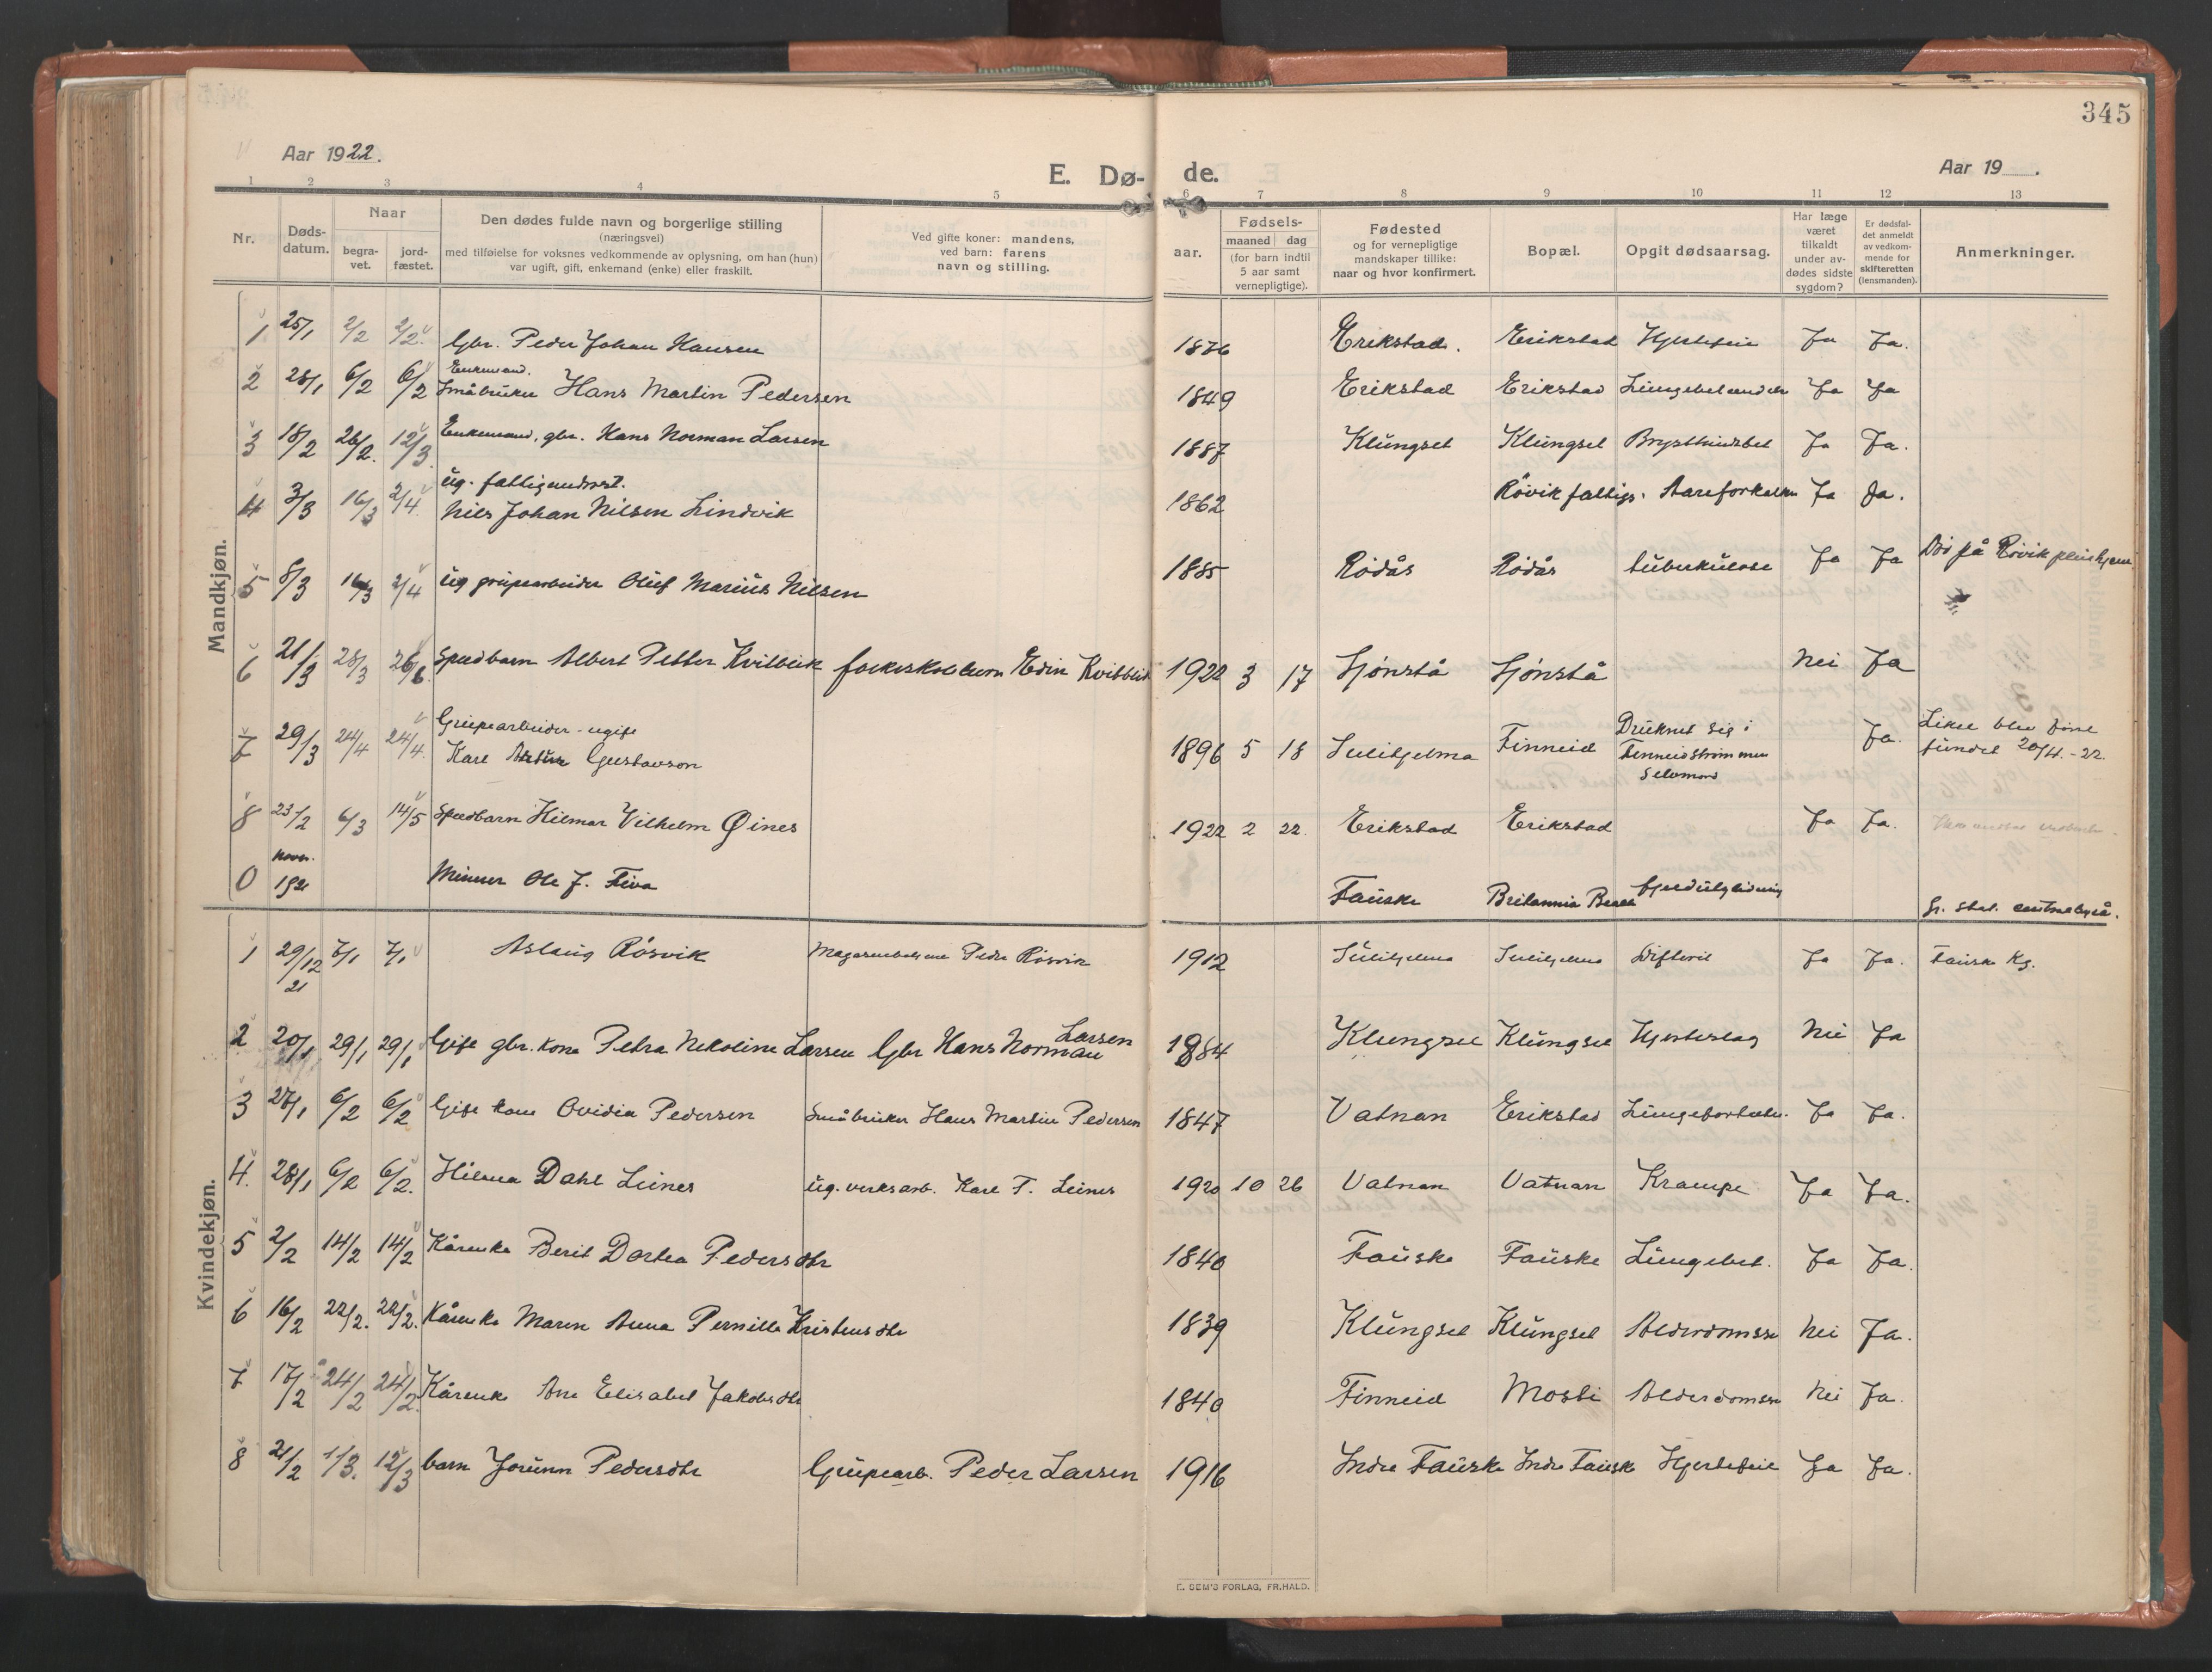 345
Aar 1922.
E. Dø- de.
Aar 19 .
1 2 3 4 5 6 7 8 9 10 11 12 13
Nr.
Døds-
datum.
Naar
begra-
vet.
jord-
fæstet.
Den dødes fulde navn og borgerlige stilling
(næringsvei)
med tilføielse for voksnes vedkommende av oplysning, om han (hun)
var ugift, gift, enkemand (enke) eller fraskilt.
Ved gifte koner: mandens,
ved barn: farens
navn og stilling.
aar.
Fødsels-
maaned dag
(for barn indtil
5 aar samt
vernepligtige).
Fødested
og for vernepligtige
mandskaper tillike:
naar og hvor konfirmert.
Bopæl.
Opgit dødsaarsag.
Har læge
været
tilkaldt
under av-
dødes sidste
sygdom?
Er dødsfal-
det anmeldt
av vedkom-
mende for
skifteretten
(lensmanden).
Anmerkninger.
Mandkjøn.
1 25/1 2/2 2/2. Gbr. Peder Johan Hansen 1836 Erikstad. Erikstad Hjertefeil Ja Ja.
Enkemand.
2 28/1 6/2 6/2 Småbruker Hans Martin Pedersen 1849 Erikstad Erikstad Lungebetændelse Ja Ja
3 18/2 26/2. 12/3. Enkemand, gbr. Hans Norman Larsen 1887 Klungset Klungset Brysthindebet Ja Ja.
ug. fattigunderst.
4 3/3 16/3 2/4. Nils Johan Nilsen Lindvik 1862 Røvik fattigg. Aareforkalkn Ja Ja.
5 8/3 16/3 2/4 ug grubearbeider Oluf Marius Nilsen 1885 Rødås Rødås tuberkulose Ja Ja Død på Røvik pleiehjem
6 21/3 28/3 26/6. Spedbarn Albert Petter Kvitblik Edin Kvitblik 1922 3 17 Sjønstå Sjønstå Nei Ja
Grubearbeider - ugift
7 29/3 24/4 24/4. Karl Artur Gustavson 1896 5 18 Sulitjelma Finneid Druknet sig i
Finneidstrømmen
Selvmord
Ja. Liket blev først
fundet 20/4.-22.
8 23/2 6/3 14/5 Spedbarn Hilmar Vilhelm Øines 1922 2 22. Erikstad Erikstad Ja Ja.
0 novbr.
1921 Minner Ole J. Fiva Fauske Britannia Beach fjeldutglidning fr. stat. centralbyrå.
Kvindekjøn.
1 29/12
21 7/1 7/1 Aslaug Røsvik Peder Røsvik 1912 Sulitjelma Sulitjelma Difteri Ja Ja. Fauske Kg.
2 20/1 29/1 29/1 Gift gbr. kone Petra Nekoline Larsen Gbr Hans Norman Larsen 1884 Klungset Klungset Hjerteslag Nei Ja
3 27/1 6/2 6/2 Gift kone Ovidia Pedersen Småbruker Hans Martin Pedersen 1847 Vatnan Erikstad Ja Ja.
4. 28/1 6/2 6/2. Hilma Dahl Leines ug. verksarb. Karl F. Leines 1920 10 26 Vatnan Vatnan Krampe Ja Ja.
5 2/2 14/2 14/2 Kårenke Berit Dortea Pedersdtr 1840 Fauske Fauske Lungebet. Ja Ja.
6 16/2 22/2. 22/2. Kårenke Maren Anna Pernille Kristensdtr 1839 Klungset Klungset Alderdomssv Nei Ja.
7 17/2 24/2 24/2. Kårenke Ane Elisabet Jakobsdtr 1840 Finneid Mosti Alderdomssv Nei Ja.
8 21/2 1/3. 12/3 barn Jorunn Pedersdtr Grubearb. Peder Larsen 1916 Indre Fauske Indre Fauske Hjertefeil Ja Ja.
E. SEM'S FORLAG, FR.HALD.